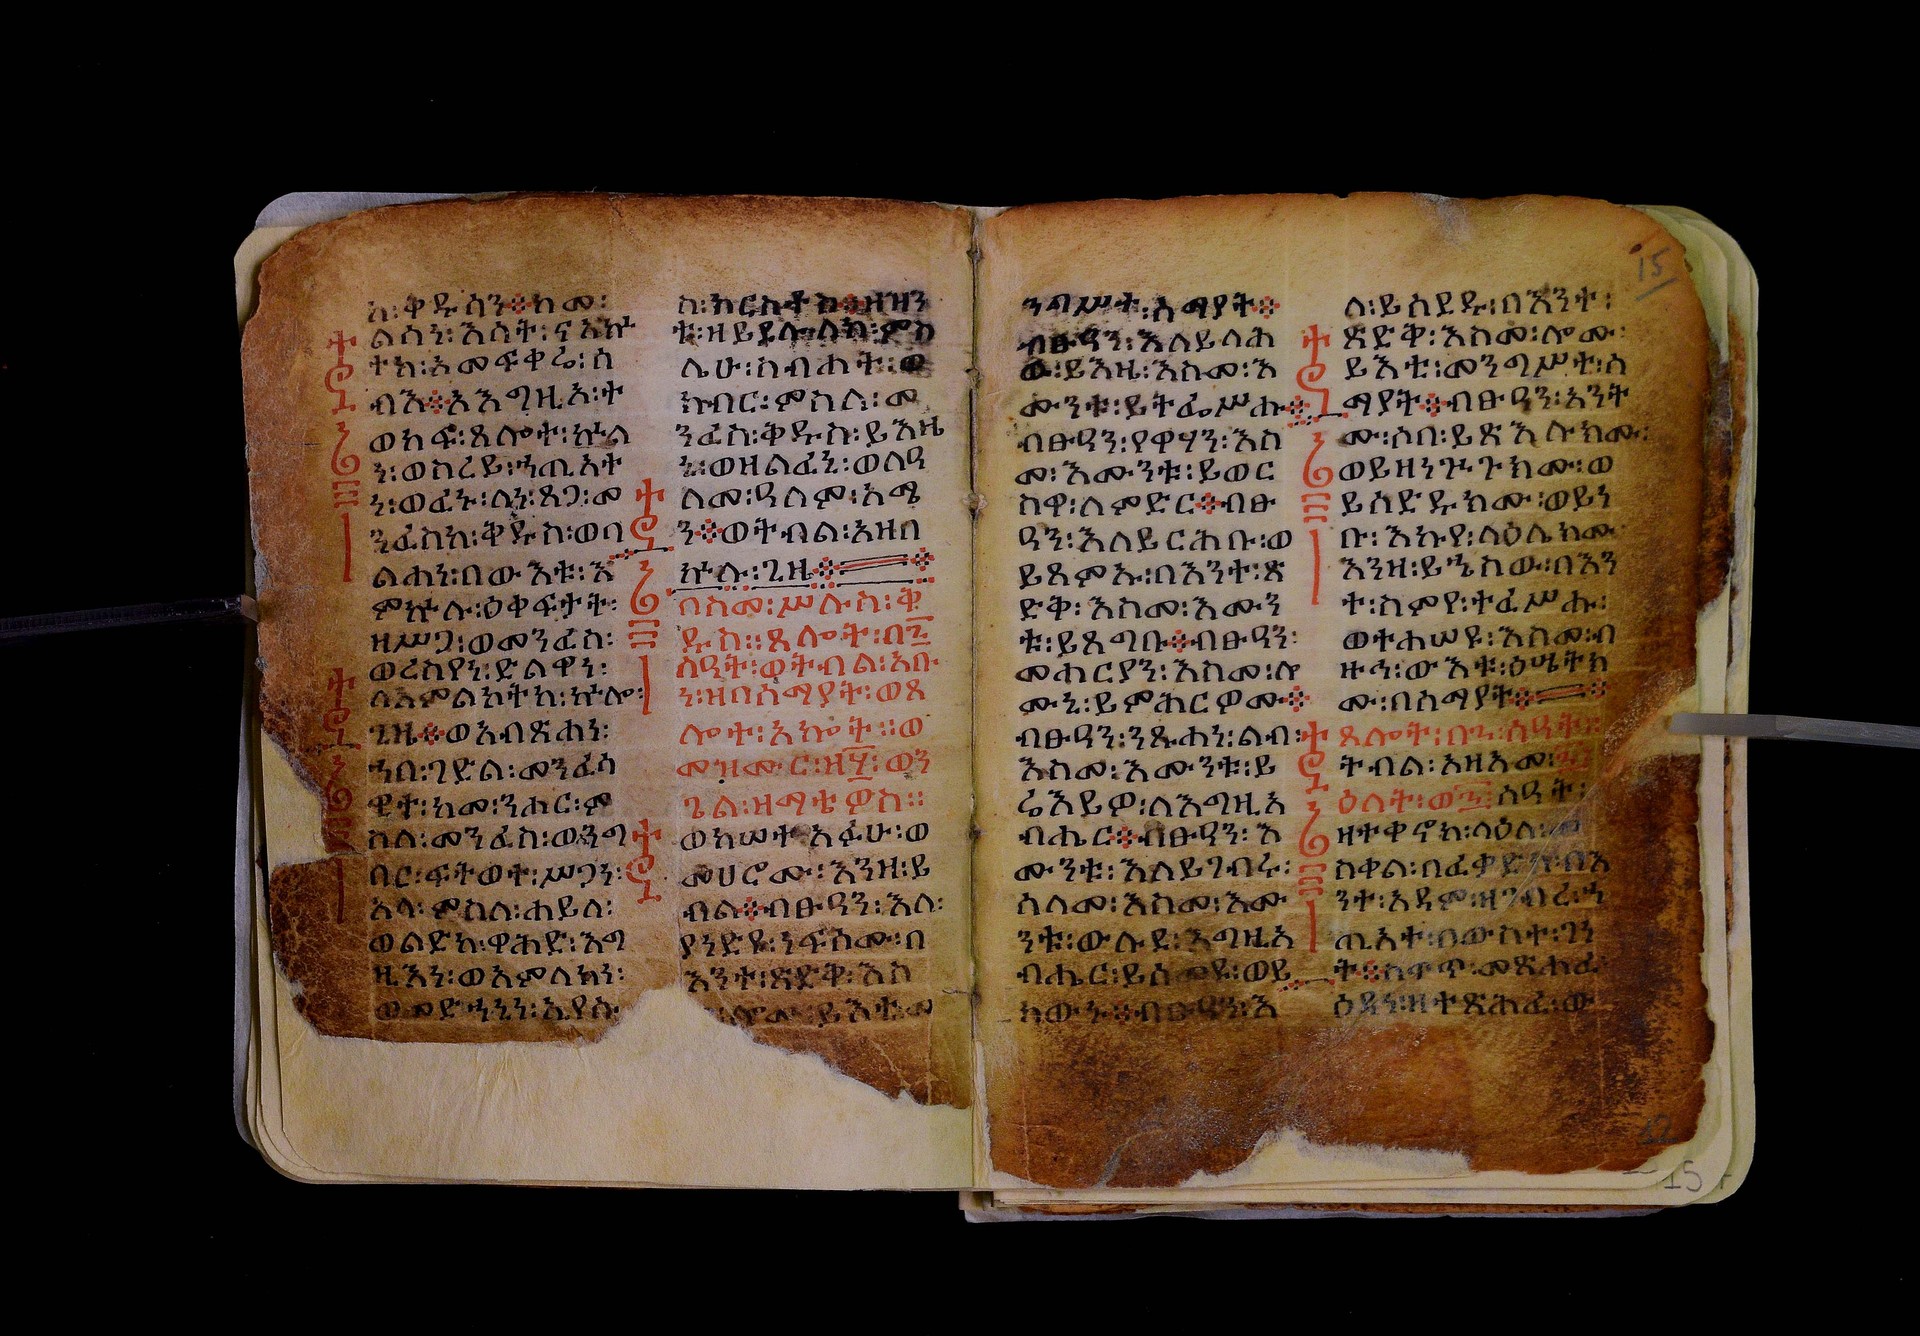 ከ፡ቅዱሳን፨ከመ፡
ልሳን፡እሳት፡ናአኵ
ተከ፡አመፍቀሬ፡ሰ
ብእ፨አእግዚአ፡ት
ወከፍ፡ጸሎተ፡ኵል
ን፡ወስረይ፡ኃጢአተ
ን፡ወፈኑ፡ለነ፡ጸጋ፡መ
ንፈስከ፡ቅዱስ፡ወባ
ልሐነ፡በውእቱ፡እ
ምኵሉ፡ዕቀፍታት፡
ዘሥጋ፡ወመንፈስ፡
ወረስየነ፡ድልዋነ፡
ለአምልኮትከ፡ኵሎ፡
ጊዜ፨ወአብጽሐነ፡
ኀበ፡ገድል፡መንፈሳ
ዊት፡ከመ፡ንሑር፡ም
ስለ፡መንፈስ፡ወንግ
በር፡ፍትወተ፡ሥጋነ፡
አላ፡ምስለ፡ሐይለ፡
ወልድከ፡ዋሕድ፡እግ
ዚእነ፡ወአምላክነ፡
ወመድኃኒነ፡ኢየሱ
ስ፡ክርስቶስ፨ዘዝን
ቱ፡ዘይደሉ፡ለከ፡ምስ
ሌሁ፡ስብሐት፡ወ
ክብር፡ምስለ፡መ
ንፈስ፡ቅዱስ፡ይእዜ
ኒ፡ወዘልፈኒ፡ወለዓ
ለመ፡ዓለም፡አሜ
ን፨ወትብል፡አዘበ
ኵሉ፡ጊዜ፨
በስመ፡ሥሉስ፡ቅ
ዱስ፡፡ጸሎት፡በ፫
ሰዓት፡ወትብል፡አቡ
ነ፡ዘበሰማያት፡ወጸ
ሎተ፡አኰት፡፡ወ
መዝሙር፡ዘ፶፡ወን
ጌል፡ዘማቴዎስ፡፡
ወከሠተ፡አፉሁ፡ወ
መሀሮሙ፡እንዘ፡ይ
ብል፨ብፁዓን፡እለ፡
ያንድዩ፡ነፍሶሙ፡በ
እንተ፡ጽድቅ፡እስ
መ፡ሎሙ፡ይእቲ፡መ
ንግሥተ፡ሰማያት፨
ብፁዓን፡እለይላሕ
ው፡ይእዜ፡እስመ፡እ
ሙንቱ፡ይትፌሥሑ፨
ብፁዓን፡የዋሃን፡እስ
መ፡እሙንቱ፡ይወር
ስዋ፡ለምድር፨ብፁ
ዓን፡እለይርሕቡ፡ወ
ይጸምኡ፡በእንተ፡ጽ
ድቅ፡እስመ፡እሙን
ቱ፡ይጸግቡ፨ብፁዓን፡
መሐርያን፡እስመ፡ሎ
ሙኒ፡ይምሕርዎሙ፨
ብፁዓን፡ንጹሐነ፡ልብ፡
እስመ፡እሙንቱ፡ይ
ሬእይዎ፡ለእግዚአ
ብሔር፨ብፁዓን፡እ
ሙንቱ፡እለይገብሩ፡
ሰላመ፡እስመ፡እሙ
ንቱ፡ውሉደ፡እግዚአ
ብሔር፡ይሰመዩ፡ወይ
ከውኑ፨ብፁዓን፡እ
ለ፡ይሰደዱ፡በእንተ፡
ጽድቅ፡እስመ፡ሎሙ፡
ይእቲ፡መንግሥተ፡ሰ
ማያት፨ብፁዓን፡አንት
ሙ፡ሶበ፡ይጽእሉክሙ፡
ወይዘነጕጉክሙ፡ወ
ይሰድዱክሙ፡ወይነ
ቡ፡እኩየ፡ላዕሌክሙ
እንዘ፡ይኄስው፡በእን
ተ፡ስምየ፡ተፈሥሑ፡
ወተሐሠዩ፡እስመ፡ብ
ዙኅ፡ውእቱ፡ዕሤትክ
ሙ፡በሰማያት፨
ጸሎት፡በ፮፡ሰዓት፡
ትብል፡አዘአመ፡
ዕለት፡ወ፮፡ሰዓት፡
ዘተቀኖከ፡ላዕለ፡መ
ስቀል፡በፈቃድከ፡በእ
ንተ፡አዳም፡ዘገብረ፡ኀ
ጢአተ፡በውስተ፡ገነ
ት፨ስጥጥ፡መጽሐፈ
ዕዳነ፡ዘተጽሕፈ፡ው
15
15